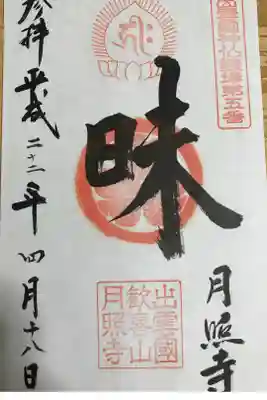 出雲國神仏霊場第五番
月照寺
昧
出雲國
歓喜山
月照寺
参拝 平成二十二年四月十八日